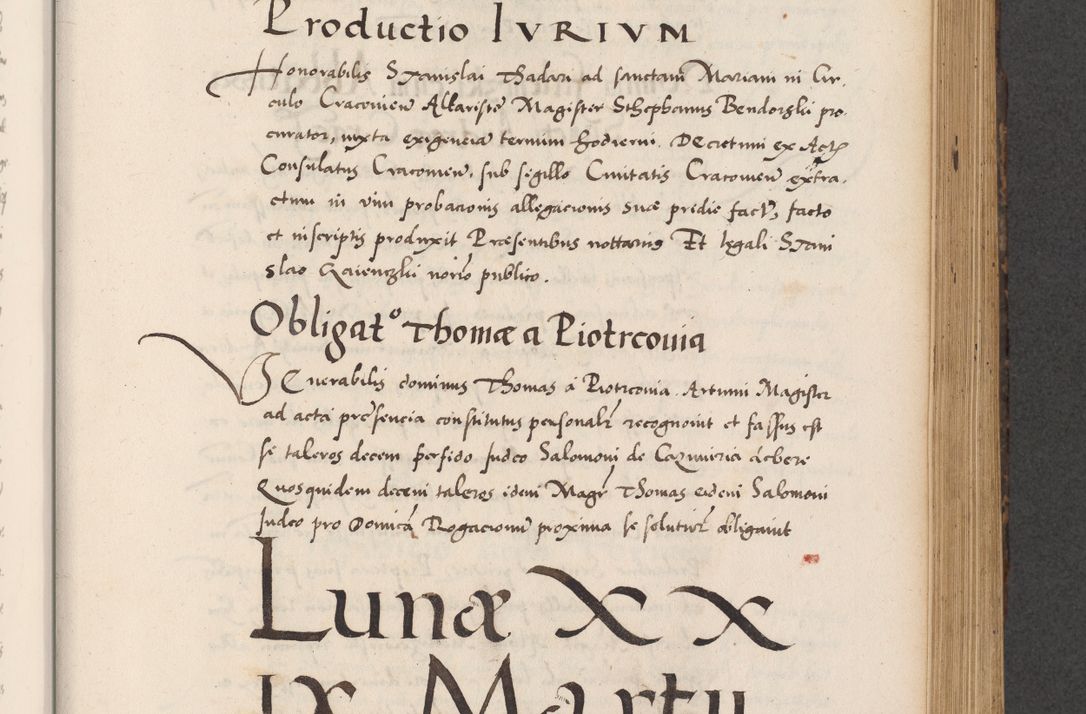 Productio IVRIVM
Honorabilis Stanislai Thadari ad sanctam Mariam in Cir.
culo Cracovien Altariste Magister Sthephanus Bendorski pro.
curator, iuxta exigencia termini hodierni. Decretum ex Act
Consulatus Cracovien, sub sigillo Civitatis Cracovien extra.
ctum in vim probacionis allegacionis sue pridie fact, facto
et in scriptis produxit Præsentibus nottarius Et legali Stani
slao publico.
Obligatº Thomæ a Piotrcovia
Venerabilis dominus Thomas a Piotrcovia. Artium Magister
ad acta presencia constitutus personalr recognovit et fassus est
se taleros decem perfido Judeo Salomoni de Cazimiria debere
Quosquidem decem taleros idem Magr Thomas eidem Salomoni
Judeo pro Domica Rogacionum proxima se soluturr obligavit
Lunæ XX
IX Martii